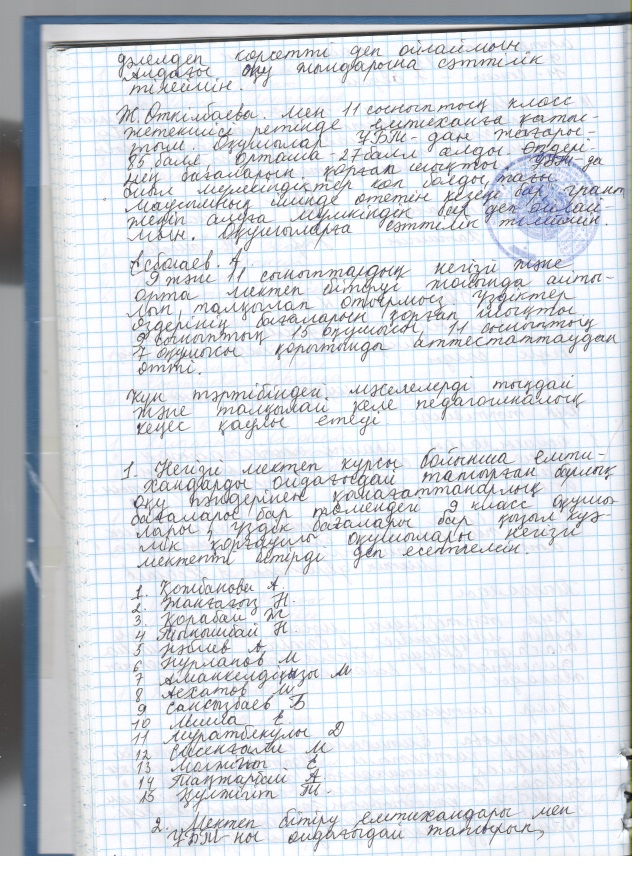 дәлелдеп көрсетті деп ойлаймын.
Алдағы оқу жылдарына сәттілік
тілеймін.
Ж. Өткілбаева. Мен 11 сыныптың класс
жетекшісі ретінде емтиханға қатыс-
тым. Оқушылар ҰБТ-дан жоғары-
85 балл орташа - 27 балл алды.
нің бағаларын қорғап шықты. ҰБТ-да
биыл мүмкіндіктер көп болды, тағы
маусымның ішінде өтетін кезеңі бар, грант
жеңіп алуға мүмкіндік бар деп ойлай-
мын. Оқушыларға сәттілік тілеймін.
Асбағаев. А
9 және 11 сыныптардың негізгі және
орта мектеп бітіруі жайында айты-
лып, талқылап отырмыз. Үздіктер
өздерінің бағаларын қорғап шықты.
9 сыныптың 15 оқушысы, 11 сыныптың
7 оқушысы қорытынды аттестаттаудан
өтті.
Күн тәртібіндегі мәселелерді тыңдай
және талқылай келе педагогикалық
кеңес қаулы етеді
1. Негізгі мектеп курсы бойынша емти-
хандарды ойдағыдай тапсырған барлық
оқу пәндерінен қанағаттанарлық
бағалары бар төмендегі 9 класс оқушы-
лары, үздік бағалары бар қызыл куә-
лік қорғаушы оқушылары негізгі
мектепті бітірді деп есептелсін.
1. Қожбанова А.
2. Жанғазы Н.
3. Қорабай Ж
4 Тынышбай Н.
5 Нәбиев А
6 Нұрлапов М
7 Аманкелдіқызы М
8 Асхатов И
9 Сансызбаев Б
10 Е
11 Мұратбекұлы Д
12 Сәсенғали М
13 Е
14 Таңтарбай А
15 Құлжігіт Т.
2. Мектеп бітіру емтихандары мен
ҰБТ-ны ойдағыдай тапсырып,